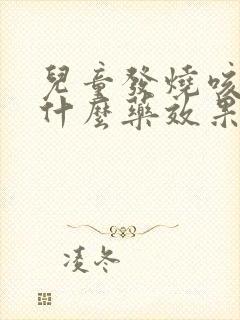 兒童發燒咳
什麼藥效果
凌冬